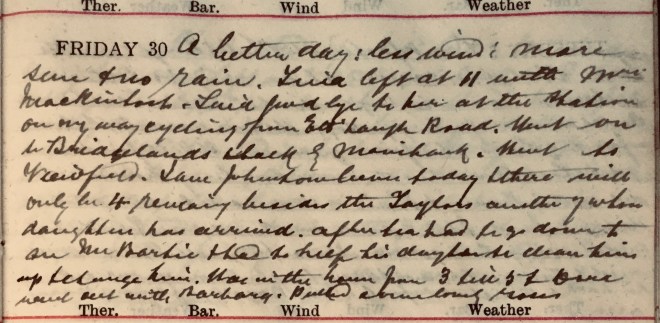 Ther. Bar. Wind Weather
FRIDAY 30 A better day: less wind: more
sun & no rain. left at 11 with Mrs
Mackintosh. Said good bye to her at the Station
on my way cycling from Road. Went on
to Bridgelands back by . Went to
Viewfield. Jane Johnstone leaves today & there will
only be 4 remaining besides the Taylors another of whose
daughters has arrived. After tea had to go down to
see Mr & had to help his daughter to clean him
up & change him. Was in the room from 3 till 5 &
went out with Barbara. Picked some lovely roses
Ther. Bar. Wind Weather